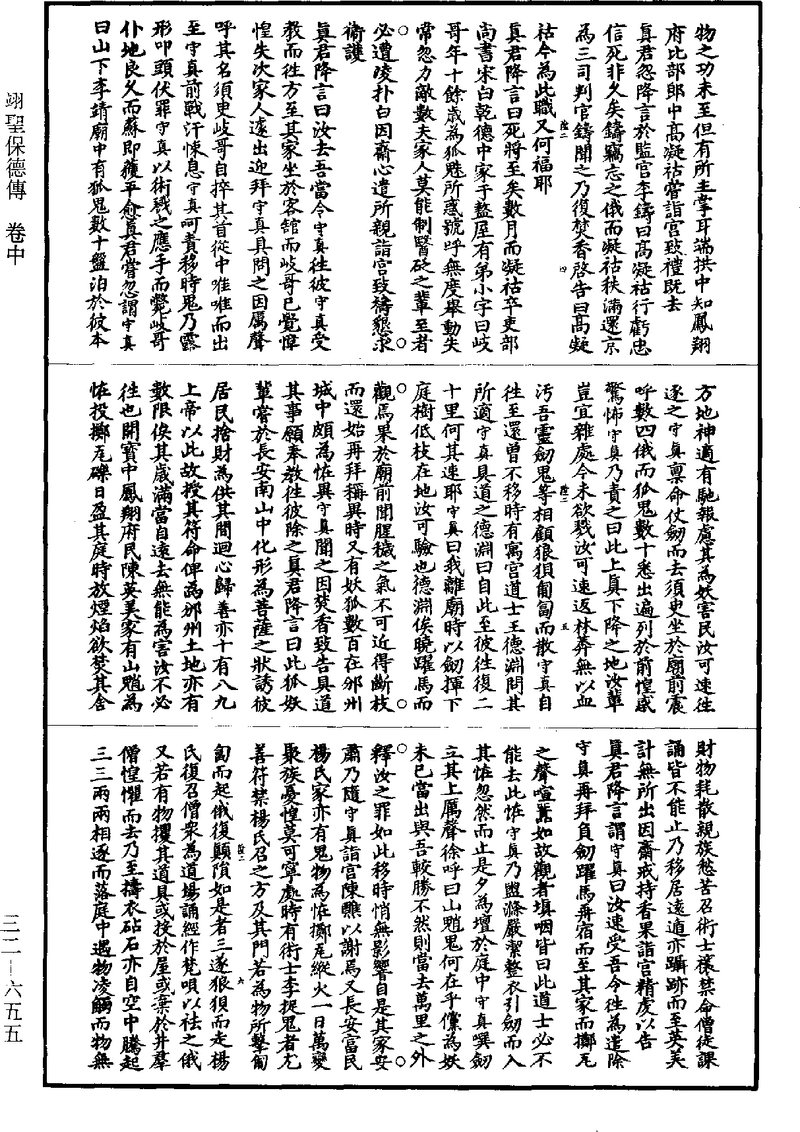 物之功未至但有所主掌耳端拱中知鳳翔
府比部郎中高凝祜嘗詣宮致禮既去
真君忽降言於監官李鑄曰高凝祜行虧忠
信死非久矣鑄竊志之俄而凝祜秩滿還京
為三司判官鑄聞之乃復焚香啓告曰高凝
祜今為此職又何福耶
真君降言曰死將至矣數月而凝祜卒吏部
尚書宋白乾德中家于盩厔有弟小字曰岐
哥年十餘歲為狐魅所惑號呼無度舉動失
常忽力敵數夫家人莫能制醫砭之輩至者
必遭陵扑白因齋心遣所親詣宮致禱懇求
衛護
真君降言曰汝去吾當令守真往彼守真受
教而往方至其家坐於客舘而岐哥已覺惶
惶失次家人遽出迎拜守真具問之因厲聲
呼其名須臾岐哥自捽其首從中唯唯而出
至守真前戰汗悚息守真呵責移時鬼乃露
形叩頭伏罪守真以術穢之應手而斃岐哥
仆地良久而蘇即獲平愈真君嘗忽謂守真
曰山下李靖廟中有狐鬼數十盤泊於彼本
方地神適有馳報慮其為妖害民汝可速往
逐之守真稟命仗劒而去須臾坐於廟前震
呼數四俄而狐鬼數十悉出遍列於前惶感
驚怖守真乃責之曰此上真下降之地汝輩
豈宜雜處今未欲戮汝可速返林莽無以血
汚吾靈劒鬼等相顧狼狽匍匐而散守真自
往至還曾不移時有寓宮道士王德淵問其
所適守真具道之德淵曰自此至彼往復二
十里何其速耶守真曰我離廟時以劒揮下
庭樹低枝在地汝可驗也德淵俟曉躍馬而
觀焉果於廟前聞腥穢之氣不可近得斷枝
而還始再拜稱異時又有妖狐數百在邠州
城中頗為怪異守真聞之因焚香致告具道
其事願奉教往彼除之真君降言曰此狐妖
輩嘗於長安南山中化形為菩薩之狀誘彼
居民捨財為供其間迴心歸善亦十有八九
上帝以此故授其符命俾為邠州土地亦有
數限俟其歲滿當自遠去無能為害汝不必
往也開寶中鳳翔府民陳英美家有山魈為
怪投擲瓦礫日盈其庭時放煙焰欲焚其舍
財物耗散親族愁苦召術士禳禁命僧徒課
誦皆不能止乃移居遠遁亦躡跡而至英美
計無所出因齋戒持香果詣宮精虔以告
真君降言謂守真曰汝速受吾令往為遣除
守真再拜負劒躍馬再宿而至其家而擲瓦
之聲喧囂如故觀者填咽皆曰此道士必不
能去此怪守真乃盥滌嚴潔整衣引劒而入
其怪忽然而止是夕為壇於庭中守真噀劒
立其上厲聲徐呼曰山魈鬼何在乎儻為妖
未已當出與吾較勝不然則當去萬里之外
釋汝之罪如此移時悄無影響自是其家安
肅乃隨守真詣宮陳醮以謝焉又長安富民
楊氏家亦有鬼物為怪擲瓦縱火一日萬變
聚族憂惶莫可寧處時有術士李捉鬼者尤
善符禁楊氏召之方及其門若為物所擊匍
匐而起俄復顛隕如是者三遂狼狽而走楊
氏復召僧衆為道場誦經作梵唄以祛之俄
又若有物攫其道具或投於屋或棄於井羣
僧惶懼而去乃至擣衣砧石亦自空中騰起
三三兩兩相逐而落庭中遇物凌觸而物無
翊聖保德傳　卷中
三二－六五五